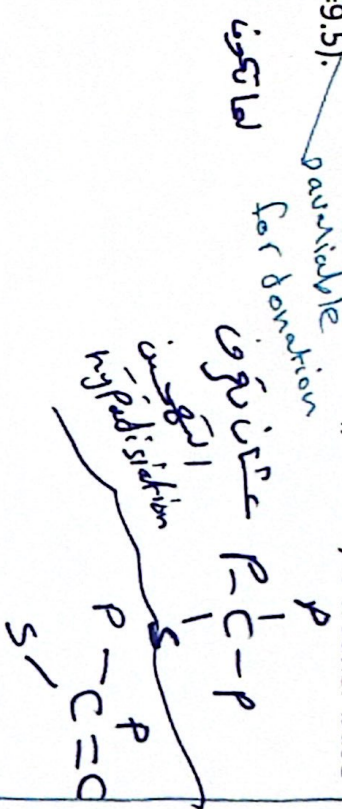 =9.5).
avaliable
for donation
لما تكون
عشان نعرف
التهجين
hypadisiation
P
P - C - P
S
P P
C = C
S